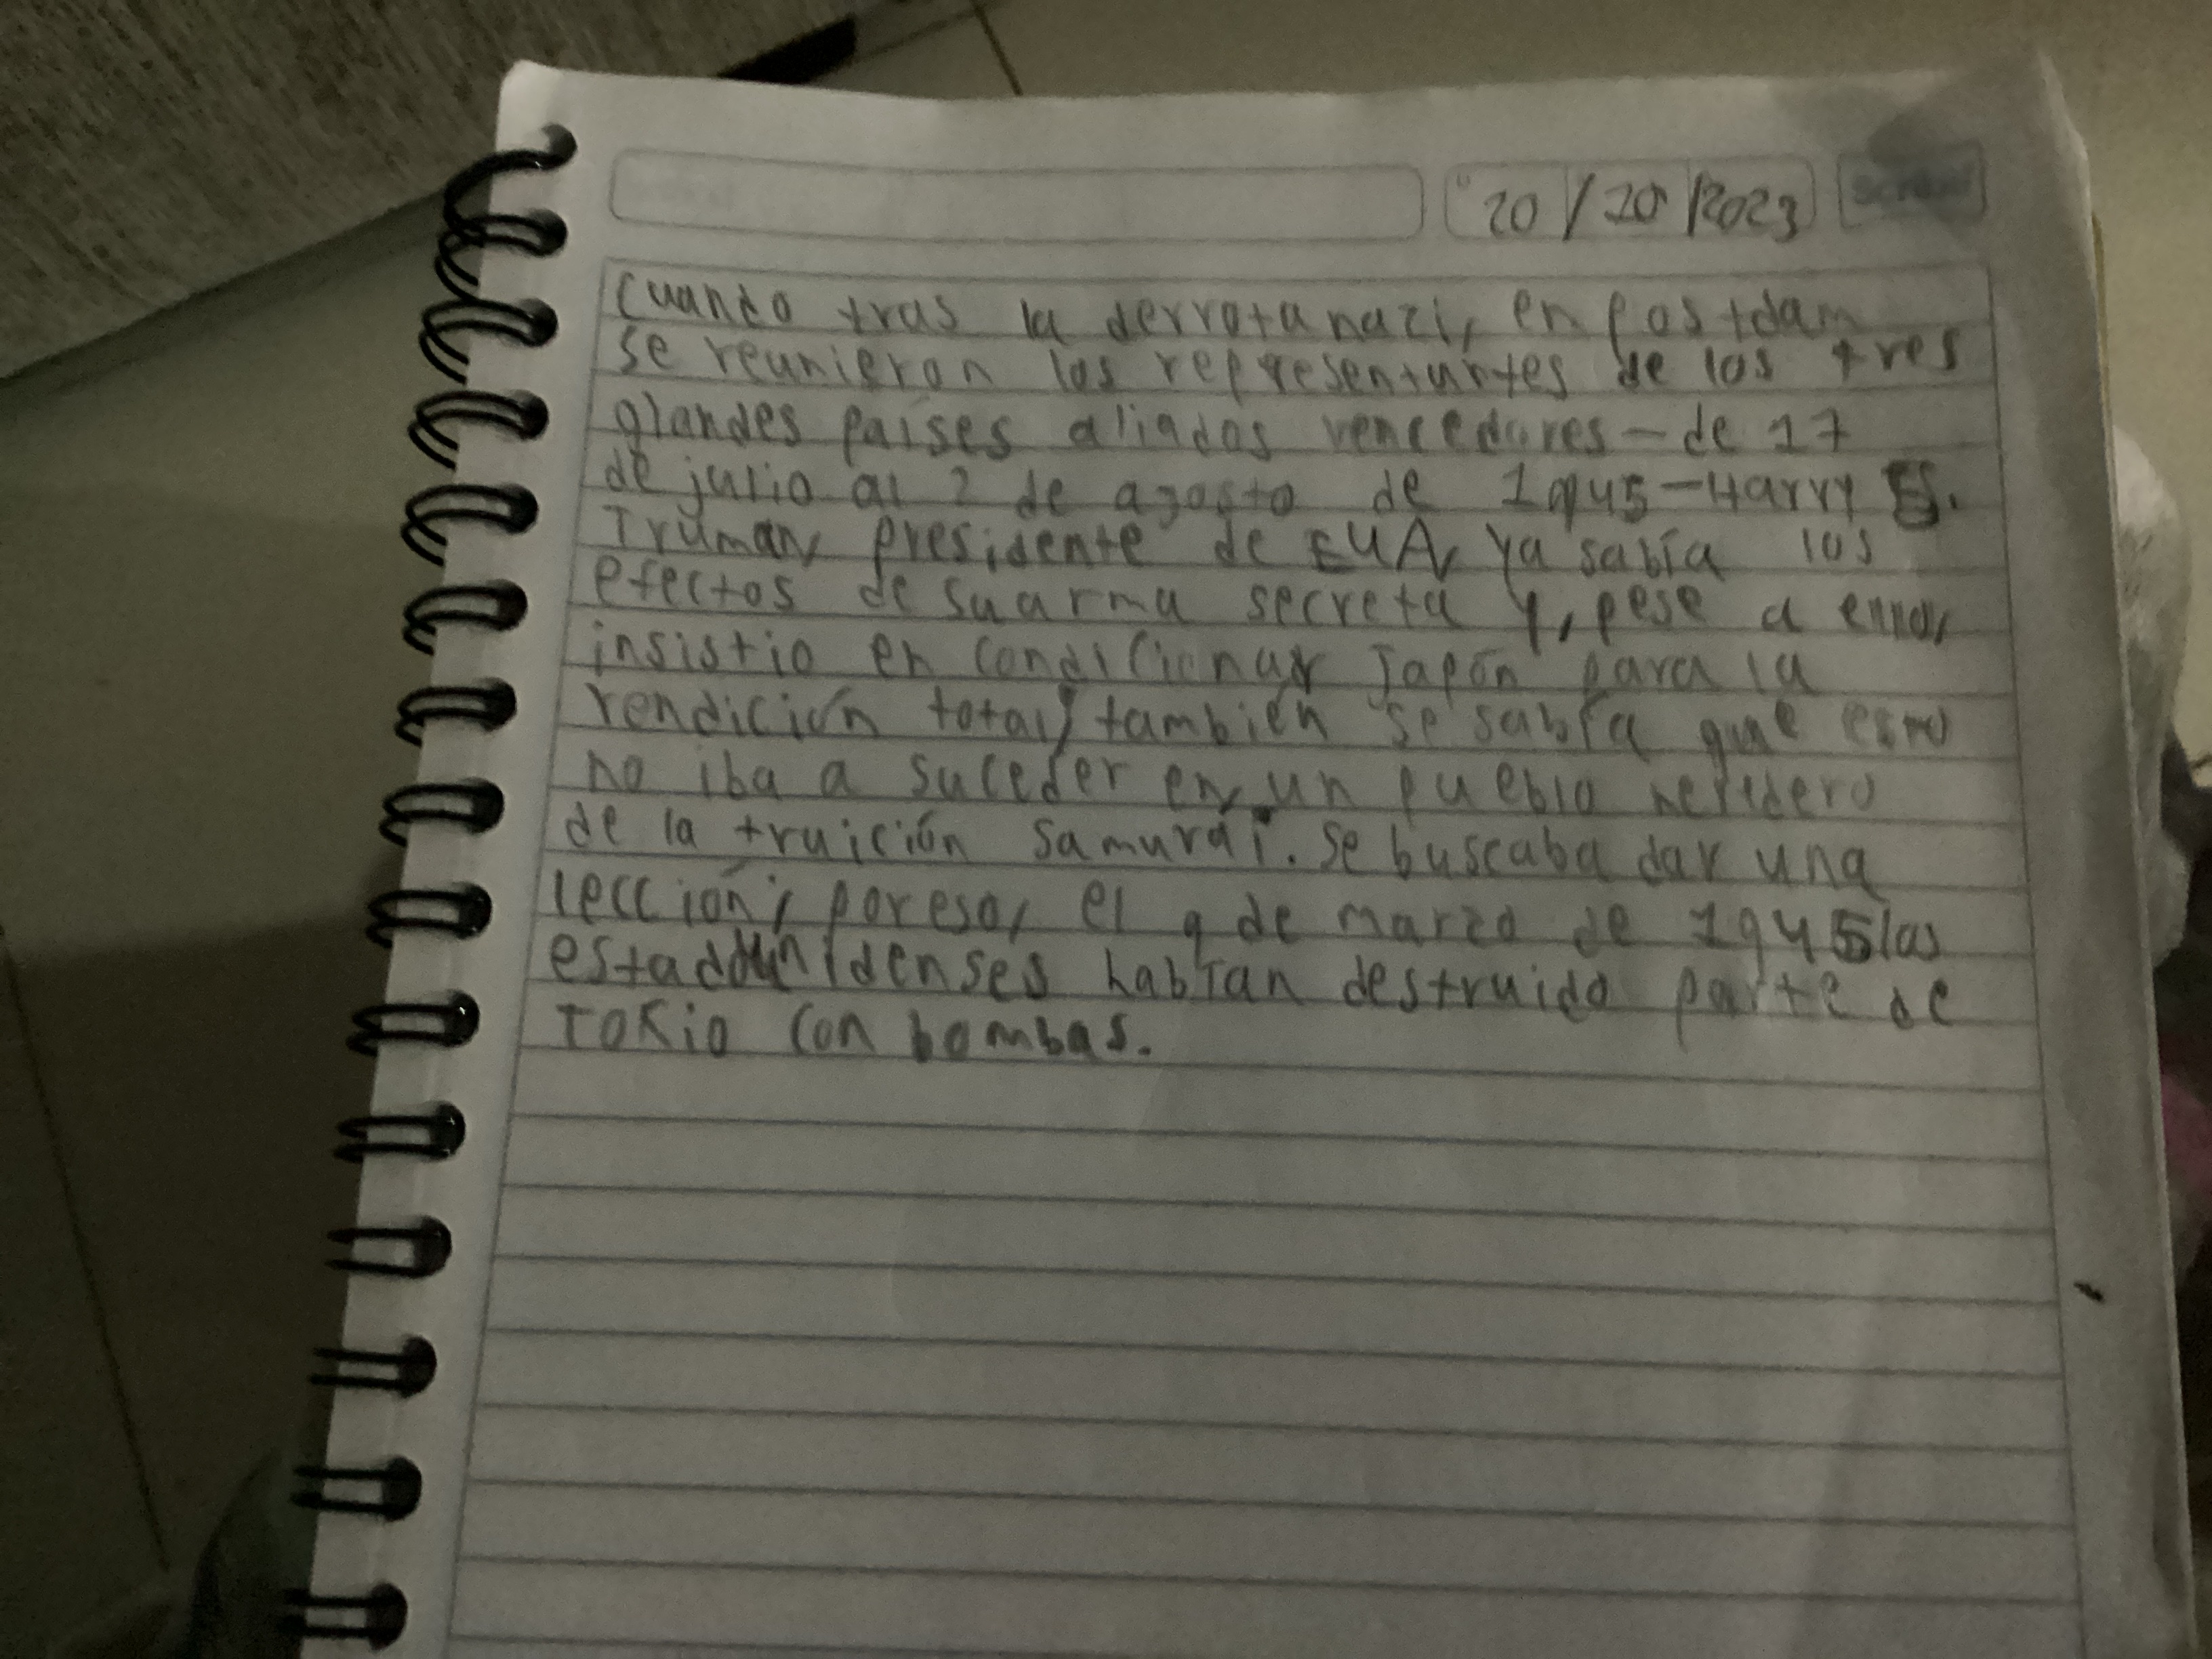 20/10/2023
Scribe
Cuando tras la derrota nazi, en Postdam
se reunieron los representantes de los tres
glandes países aliados vencedores - de 17
de julio al 2 de agosto de 1945 - Harry S.
Truman, presidente de EUA, ya sabía los
efectos de su arma secreta y, pese a
insistio en condicionar Japón para la
rendición total, también se sabía que
no iba a suceder en un pueblo
de la truición samurái. Se buscaba dar una
lección; por eso, el 9 de marzo de 1945 las
estadounidenses habían destruido parte de
Tokio con bombas.